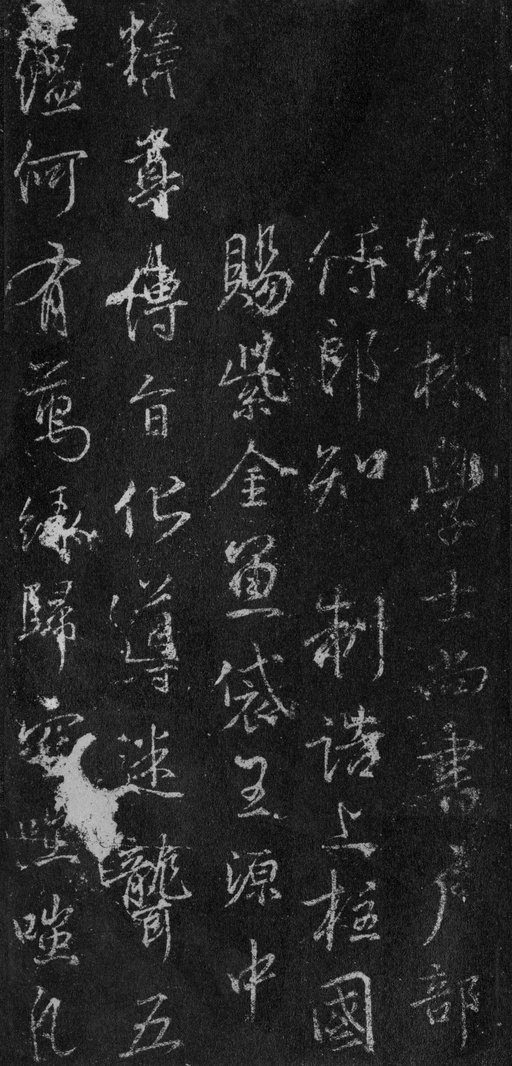 翰林學士尚書戶部
侍郎知 制誥上柱國
賜紫金魚袋王源中
精尊傳旨化導迷聾五
蘊何有萬緣歸空嗤嗤凡